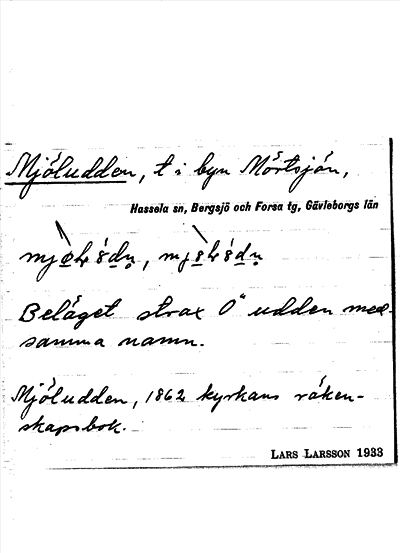 Mjöludden, t i byn Mörtsjön,
Hassela sn, Bergsjö och Forsa tg, Gävleborgs län
Beläget strax O om udden med
samma namn.
Mjöludden, 1862 kyrkans räken-
skapsbok.
LARS LARSSON 1933